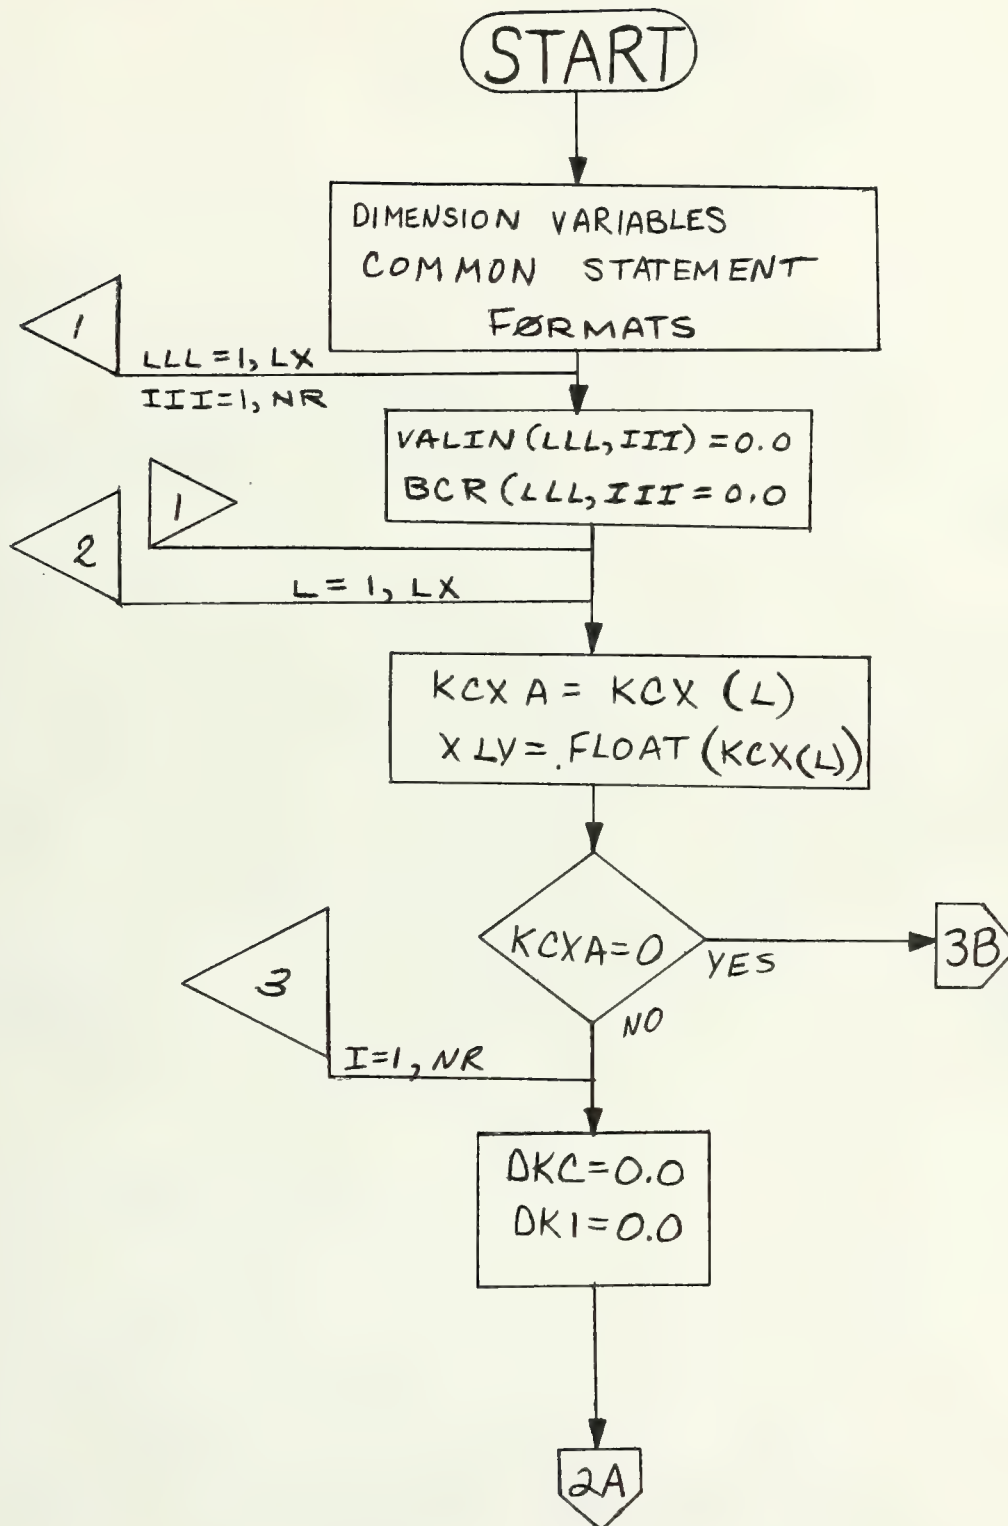 START
DIMENSION VARIABLES
COMMON STATEMENT
FØRMATS
1
LLL = 1, LX
III = 1, NR
VALIN (LLL, III) = 0.0
BCR (LLL, III = 0.0
1
2
L = 1, LX
KCX A = KCX (L)
X LY = FLOAT (KCX(L))
KCXA=0
YES
3B
NO
3
I=1, NR
DKC=0.0
DK1=0.0
2A